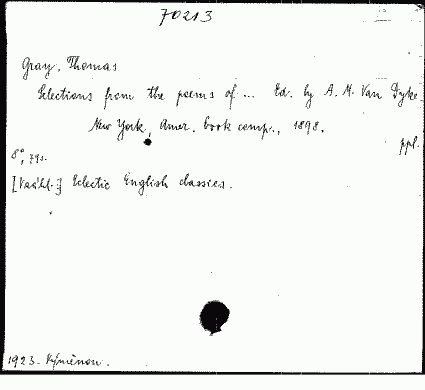 70213
Gray, Thomas
Selections from the poems of ... Ed. by A. M. Van Dyke
New York, Amer. book comp., 1898.
ppl.
8°, 79s.
Eclectic English classics.
1923. Výměnou.